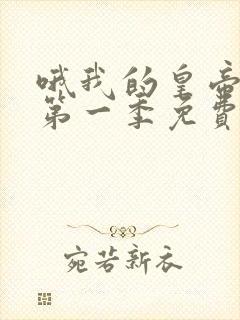 哦我的皇帝
第一季免费
宛若新衣